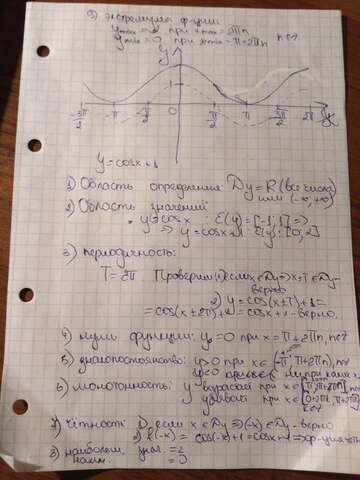 9) экстремумы функции
y max = 2 при x max = 2πn
y min = 0 при x min = π+2πn n∈Z
y
0
x
-3π/2 -π -π/2 π/2 π 3π/2 2π
y=cosx+1
1) Область определения Dy=R (все числа
или (-∞;+∞)
2) Область значений
y=cosx E(y)=[-1;1] =>
=> y=cosx+1 E(y): [0;2]
3) периодичность:
T=2π Проверим: 1) если x∈Dy => x+T∈Dy-
верно
2) y=cos(x+T)+1=
=cos(x+2π)+1=cosx+1-верно.
4) нули функции: y=0 при x=π+2πn, n∈Z
5) знакопостоянство: y>0 при x∈(-π+2πn; π+2πn), n∈Z
y<0 ни при каких x
6) монотонность: y возрастает при x∈[π+2πn; 2π+2πn], n∈Z
убывает при x∈[0+2πn; π+2πn]
n∈Z
7) чётность: 1) если x∈Dy => (-x)∈Dy - верно
2) f(-x) = cos(-x)+1=cosx+1 => ф-ция чётн
8) наибольш. знач. = 2
наим. = 0